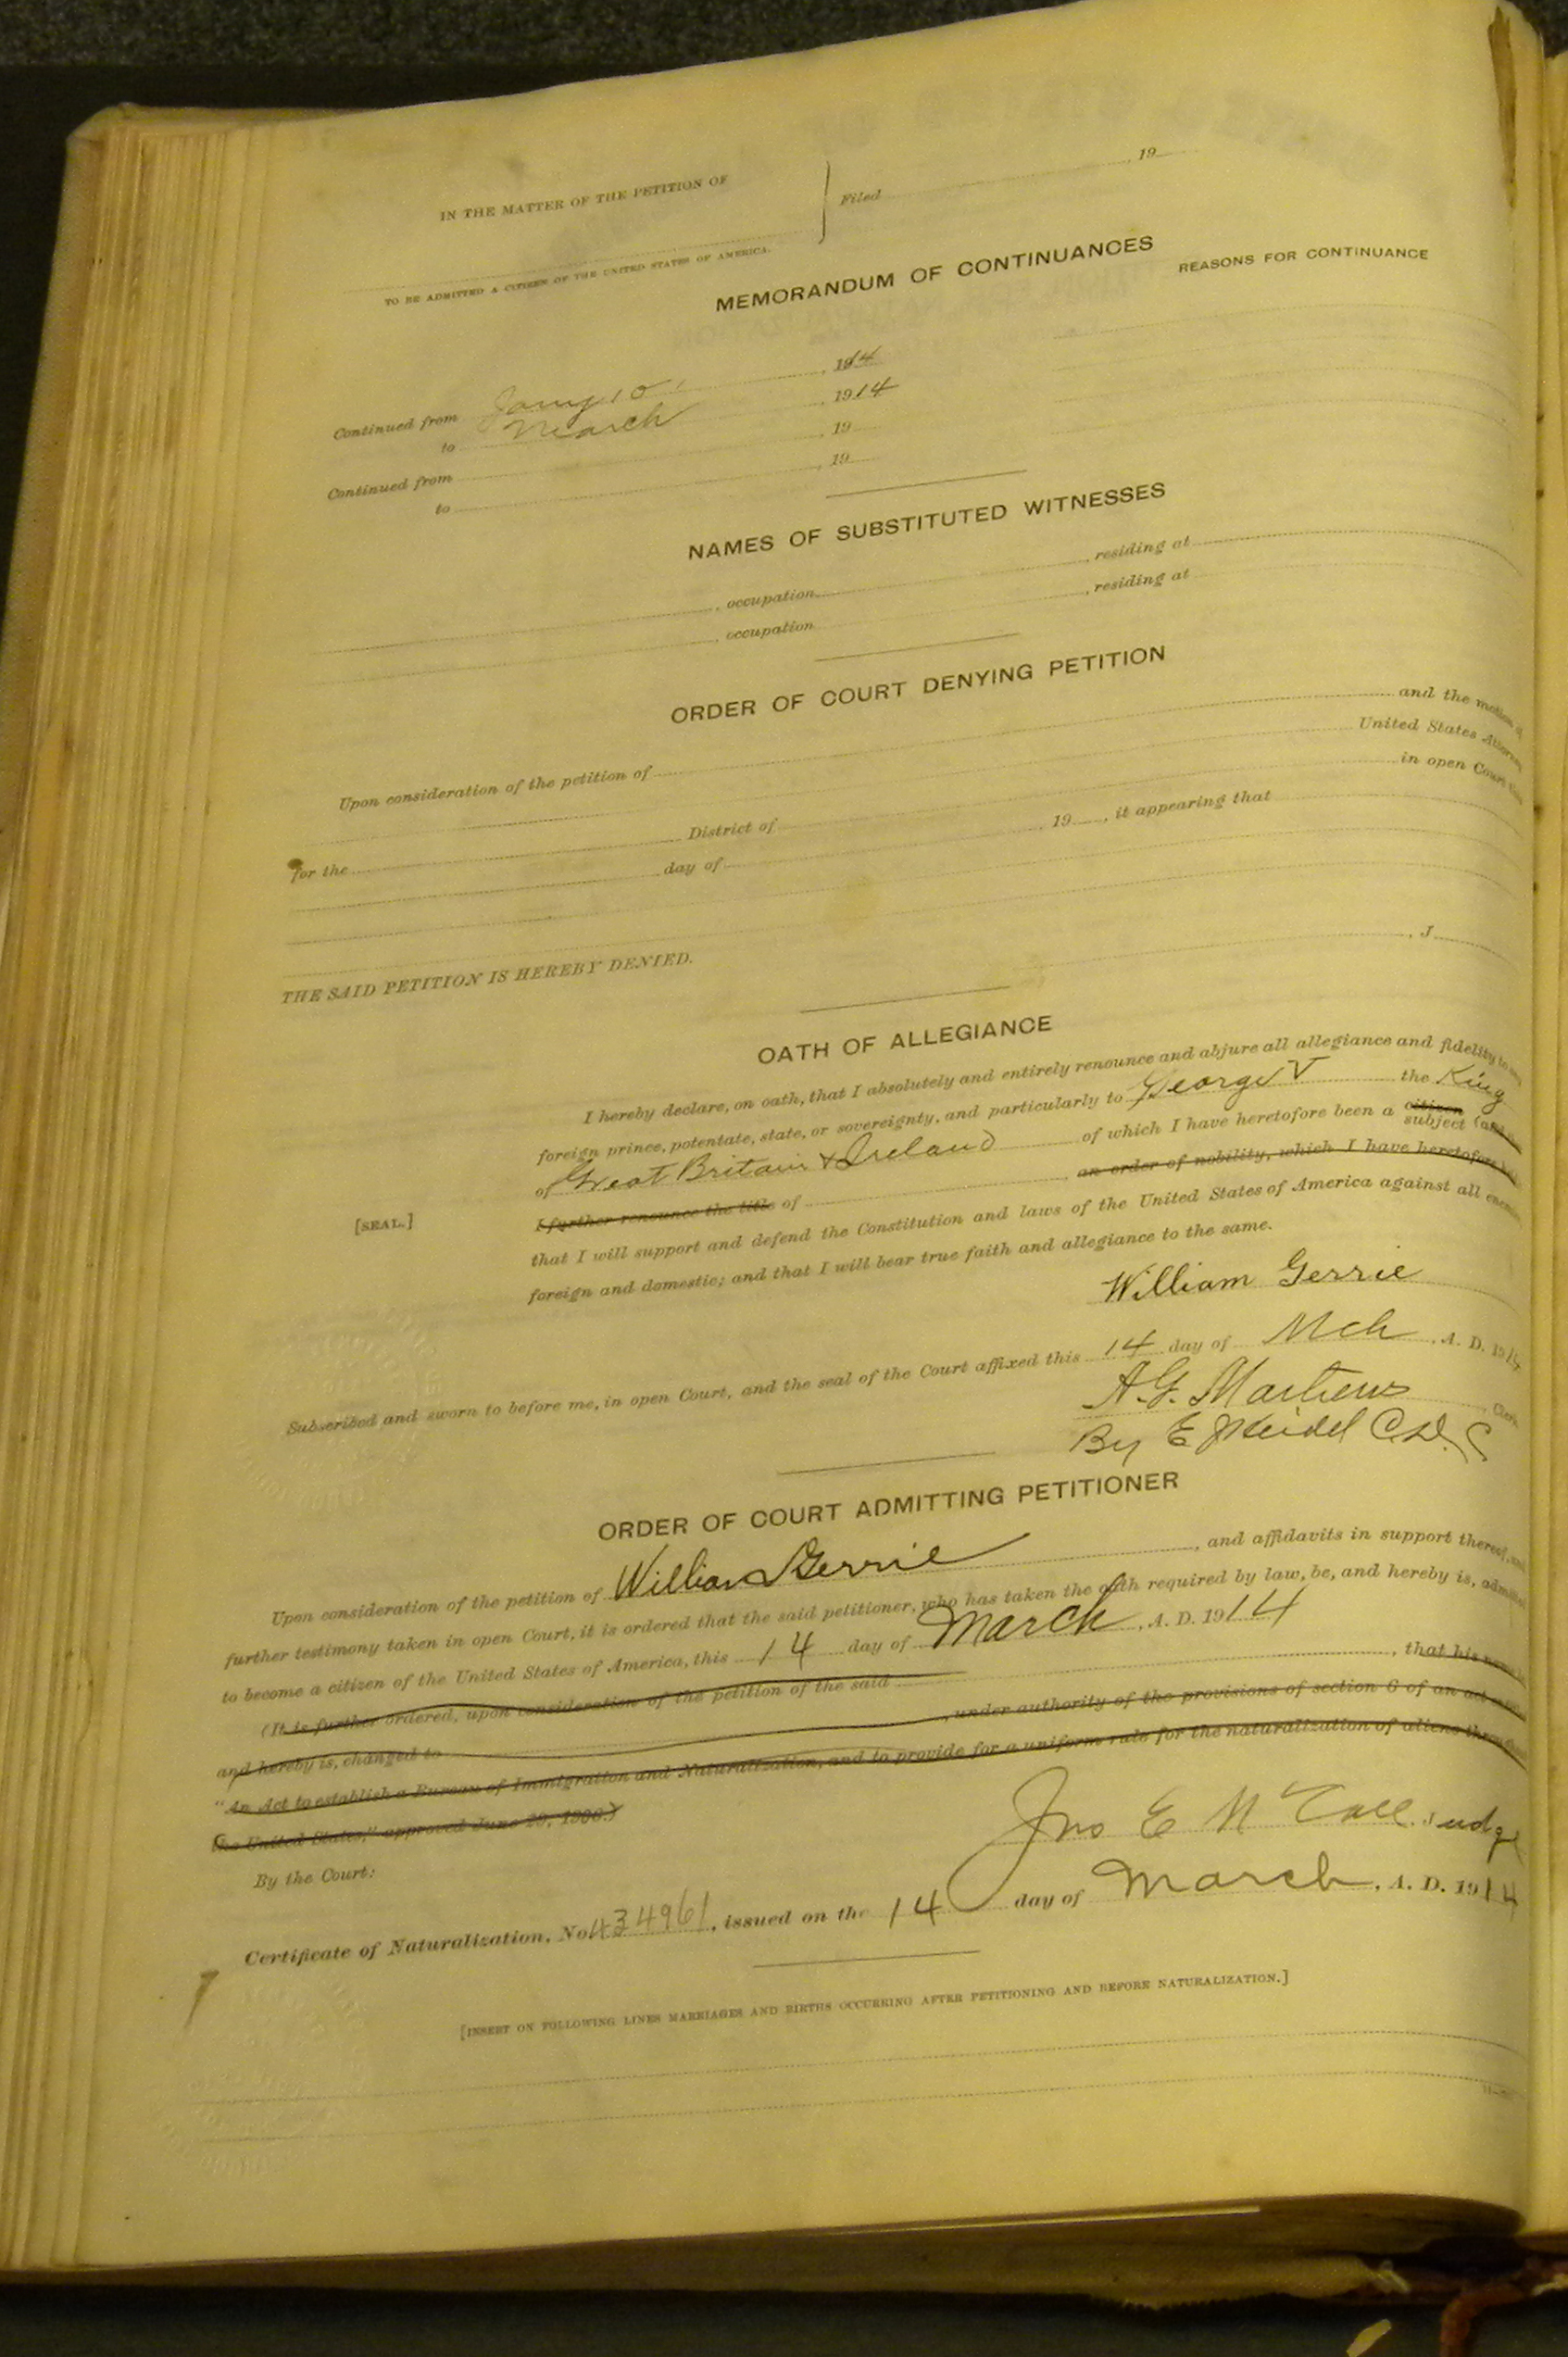 IN THE MATTER OF THE PETITION OF
Filed , 19
TO BE ADMITTED A CITIZEN OF THE UNITED STATES OF AMERICA.
MEMORANDUM OF CONTINUANCES
REASONS FOR CONTINUANCE
Continued from Jany 10, 1914
to March, 1914
Continued from , 19
to , 19
NAMES OF SUBSTITUTED WITNESSES
, occupation , residing at
, occupation , residing at
ORDER OF COURT DENYING PETITION
Upon consideration of the petition of and the motion of
United States Attorney
for the District of in open Court this
day of , 19 , it appearing that
THE SAID PETITION IS HEREBY DENIED.
, J
OATH OF ALLEGIANCE
I hereby declare, on oath, that I absolutely and entirely renounce and abjure all allegiance and fidelity to any
foreign prince, potentate, state, or sovereignty, and particularly to George V the King
of Great Britain & Ireland of which I have heretofore been a citizen subject
I further renounce the title of , an order of nobility, which I have heretofore
[SEAL.]
that I will support and defend the Constitution and laws of the United States of America against all enemies
foreign and domestic; and that I will bear true faith and allegiance to the same.
William Gerrie
Subscribed and sworn to before me, in open Court, and the seal of the Court affixed this 14 day of Mch, A. D. 1914
A.G. Matthews, Clerk
By E
ORDER OF COURT ADMITTING PETITIONER
Upon consideration of the petition of William Gerrie, and affidavits in support thereof, and
further testimony taken in open Court, it is ordered that the said petitioner, who has taken the oath required by law, be, and hereby is, admitted
to become a citizen of the United States of America, this 14 day of March, A. D. 1914
(It is further ordered, upon consideration of the petition of the said , that his name be
and hereby is, changed to , under authority of the provisions of section 6 of an act
"An Act to establish a Bureau of Immigration and Naturalization, and to provide for a uniform rule for the naturalization of aliens throughout
the United States," approved June 29, 1906.)
By the Court: Jno E McCall Judge
Certificate of Naturalization, No 434961, issued on the 14 day of March, A. D. 1914
[INSERT ON FOLLOWING LINES MARRIAGES AND BIRTHS OCCURRING AFTER PETITIONING AND BEFORE NATURALIZATION.]